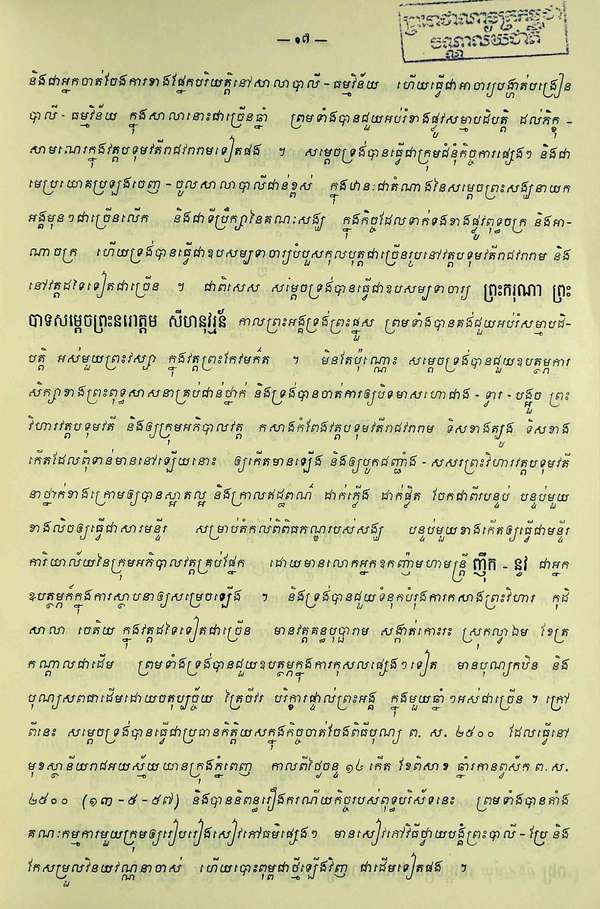 — ១៧ —
និងជាអ្នកចាត់ចែងការខាងផ្នែកបរិយត្តិនៅសាលាបាលី - ធម្មវិន័យ ហើយធ្វើជាអាចារ្យបង្ហាត់បង្រៀន
បាលី - ធម្មវិន័យ ក្នុងសាលានោះជាច្រើនឆ្នាំ ព្រមទាំងបានជួយអប់រំខាងផ្លូវសម្មាបដិបត្តិ ដល់ភិក្ខុ -
សាមណេរក្នុងវត្តបទុមវតីរាជវរារាមទៀតផង ។ សម្ដេចទ្រង់បានធ្វើជាក្រុមជំនុំកិច្ចការផ្សេងៗ និងជា
មេប្រយោគប្រឡងចេញ - ចូលសាលាបាលីជាន់ខ្ពស់ ក្នុងឋានៈជាតំណាងនៃសម្ដេចព្រះសង្ឃនាយក
អង្គមុនៗជាច្រើនលើក និងជាទីប្រឹក្សានៃគណៈសង្ឃ ក្នុងកិច្ចដែលទាក់ទងខាងផ្លូវពុទ្ធចក្រ និងអា-
ណាចក្រ ហើយទ្រង់បានធ្វើជាឧបសម្បទាចារ្យបំបួសកុលបុត្តជាច្រើនរូបនៅវត្តបទុមវតីរាជវរារាម និង
នៅវត្តដទៃទៀតជាច្រើន ។ ជាពិសេស សម្ដេចទ្រង់បានធ្វើជាឧបសម្បទាចារ្យ ព្រះករុណា ព្រះ
បាទសម្តេចព្រះនរោត្តម សីហនុវរ្ម័ន កាលព្រះអង្គទ្រង់ព្រះផ្នួស ព្រមទាំងបានគង់ជួយអប់រំសម្មាបដិ-
បត្តិ អស់មួយព្រះវស្សា ក្នុងព្រះកែវមរកត ។ មិនតែប៉ុណ្ណោះ សម្ដេចទ្រង់បានជួយឧបត្ថម្ភការ
សិក្សាខាងព្រះពុទ្ធសាសនាគ្រប់ជាន់ថ្នាក់ និងទ្រង់បានចាត់ការឲ្យបិទមាសហោជាង - ទ្វារ - បង្អួច ព្រះ
វិហារវត្តបទុមវតី និងឲ្យក្រុមអភិបាលវត្ត កសាងកំពែងវត្តបទុមវតីរាជវរារាម ទិសខាងត្បូង ទិសខាង
កើតដែលពុំទាន់មាននៅឡើយនោះ ឲ្យកើតមានឡើង និងឲ្យបូកជញ្ជាំង - សសរព្រះវិហារវត្តបទុមវតី
នាថ្នាក់ខាងក្រោមឲ្យបានស្អាតល្អ និងក្រាលឥដ្ឋពណ៌ ដាក់ភ្លើង ដាក់ផ្លិត ចែកជាពីរបន្ទប់ បន្ទប់មួយ
ខាងលិចឲ្យធ្វើជាសារមន្ទីរ សម្រាប់តំកល់ពិពិធភណ្ឌរបស់សង្ឃ បន្ទប់មួយខាងកើតឲ្យធ្វើជាមន្ទីរ
ការិយាល័យនៃក្រុមអភិបាលវត្តគ្រប់ផ្នែក ដោយមានលោកអ្នកឧកញ៉ាមហាមន្ត្រី ញ៉ឹក - នូវ ជាអ្នក
ឧបត្ថម្ភក៍ក្នុងការស្ថាបនាឲ្យសម្រេចឡើង ។ និងទ្រង់បានជួយទំនុកបំរុងការកសាងព្រះវិហារ កុដិ
សាលា ចេតិយ ក្នុងវត្តដទៃទៀតជាច្រើន មានវត្តគន្ធបុប្ផារាម សង្កាត់កោះរះ ស្រុកល្វាឯម ខែត្រ
កណ្ដាលជាដើម ព្រមទាំងទ្រង់បានជួយឧបត្ថម្ភក្នុងការកុសលផ្សេងៗទៀត មានបុណ្យកឋិន និង
បុណ្យសពជាដើមដោយចតុប្បច្ច័យ ត្រៃចីវរ បរិក្ខារផ្ទាល់ព្រះអង្គ ក្នុងមួយឆ្នាំៗអស់ជាច្រើន ។ ក្រៅ
ពីនេះ សម្ដេចទ្រង់បានធ្វើជាប្រធានកិត្តិយសក្នុងកិច្ចចាត់ចែងពិធីបុណ្យ ព. ស. ២៥០០ ដែលធ្វើនៅ
មុខស្ថានីយរាជអយស្ម័យយានក្រុងភ្នំពេញ កាលពីថ្ងៃចន្ទ ១៤ កើត ខែពិសាខ ឆ្នាំរកានព្វស័ក ព. ស.
២៥០០ (១៣ - ៥ - ៥៧) និងបាននិពន្ធរឿងករណីយកិច្ចរបស់ពុទ្ធបរិស័ទនេះ ព្រមទាំងបានតាំង
គណៈកម្មការមួយក្រុមឲ្យរៀបរៀងសៀវភៅធម៌ផ្សេងៗ មានសៀវភៅវិធីថ្វាយបង្គំព្រះបាលី - ប្រែ និង
កែសម្រួលវិនយវណ្ណនាចាស់ ហើយបោះពុម្ពជាថ្មីឡើងវិញ ជាដើមទៀតផង ។